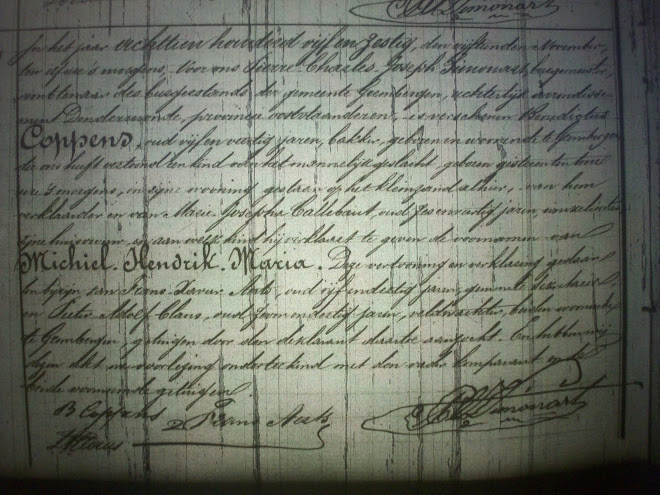 In het jaar achttien honderd vijf en zestig, den vijftienden November,
ten ure 's morgens, Voor ons Pierre Charles Joseph Limonart, burgemeester,
ambtenaar des burgerstands der gemeente Grembergen, rechterlijk arrondisse-
ment Dendermonde, provincie oostvlaanderen, is verschenen Benediktus
Coppens, oud vijf en veertig jaren, bakker, geboren en wonende te Grembergen
die ons heeft vertoond een kind van het mannelijk geslacht, geboren gisteren ten
ure 's morgens, in zijne wooning gestaan op het kleinzand alhier, van hem
verklaarder en van Marie Josepha Callebaut, oud zes en veertig jaren,
zijne huisvrouw, en aan welk kind hij verklaart te geven de voornamen van
Michiel Hendrik Maria. Deze vertooning en verklaring gedaan
in bijzijn van Frans Xavier Aerts, oud vijf en dertig jaren, gemeente Secretaris
en Pieter Adolf Claus, oud jaren, veldwachter, beiden woonende
te Grembergen, getuigen door den deklarant daartoe aanzocht. En hebben wij
dezen akt na voorlezing onderteekend met den vader komparant en de
beide voornoemde getuigen.
B Coppens Frans Aerts Limonart